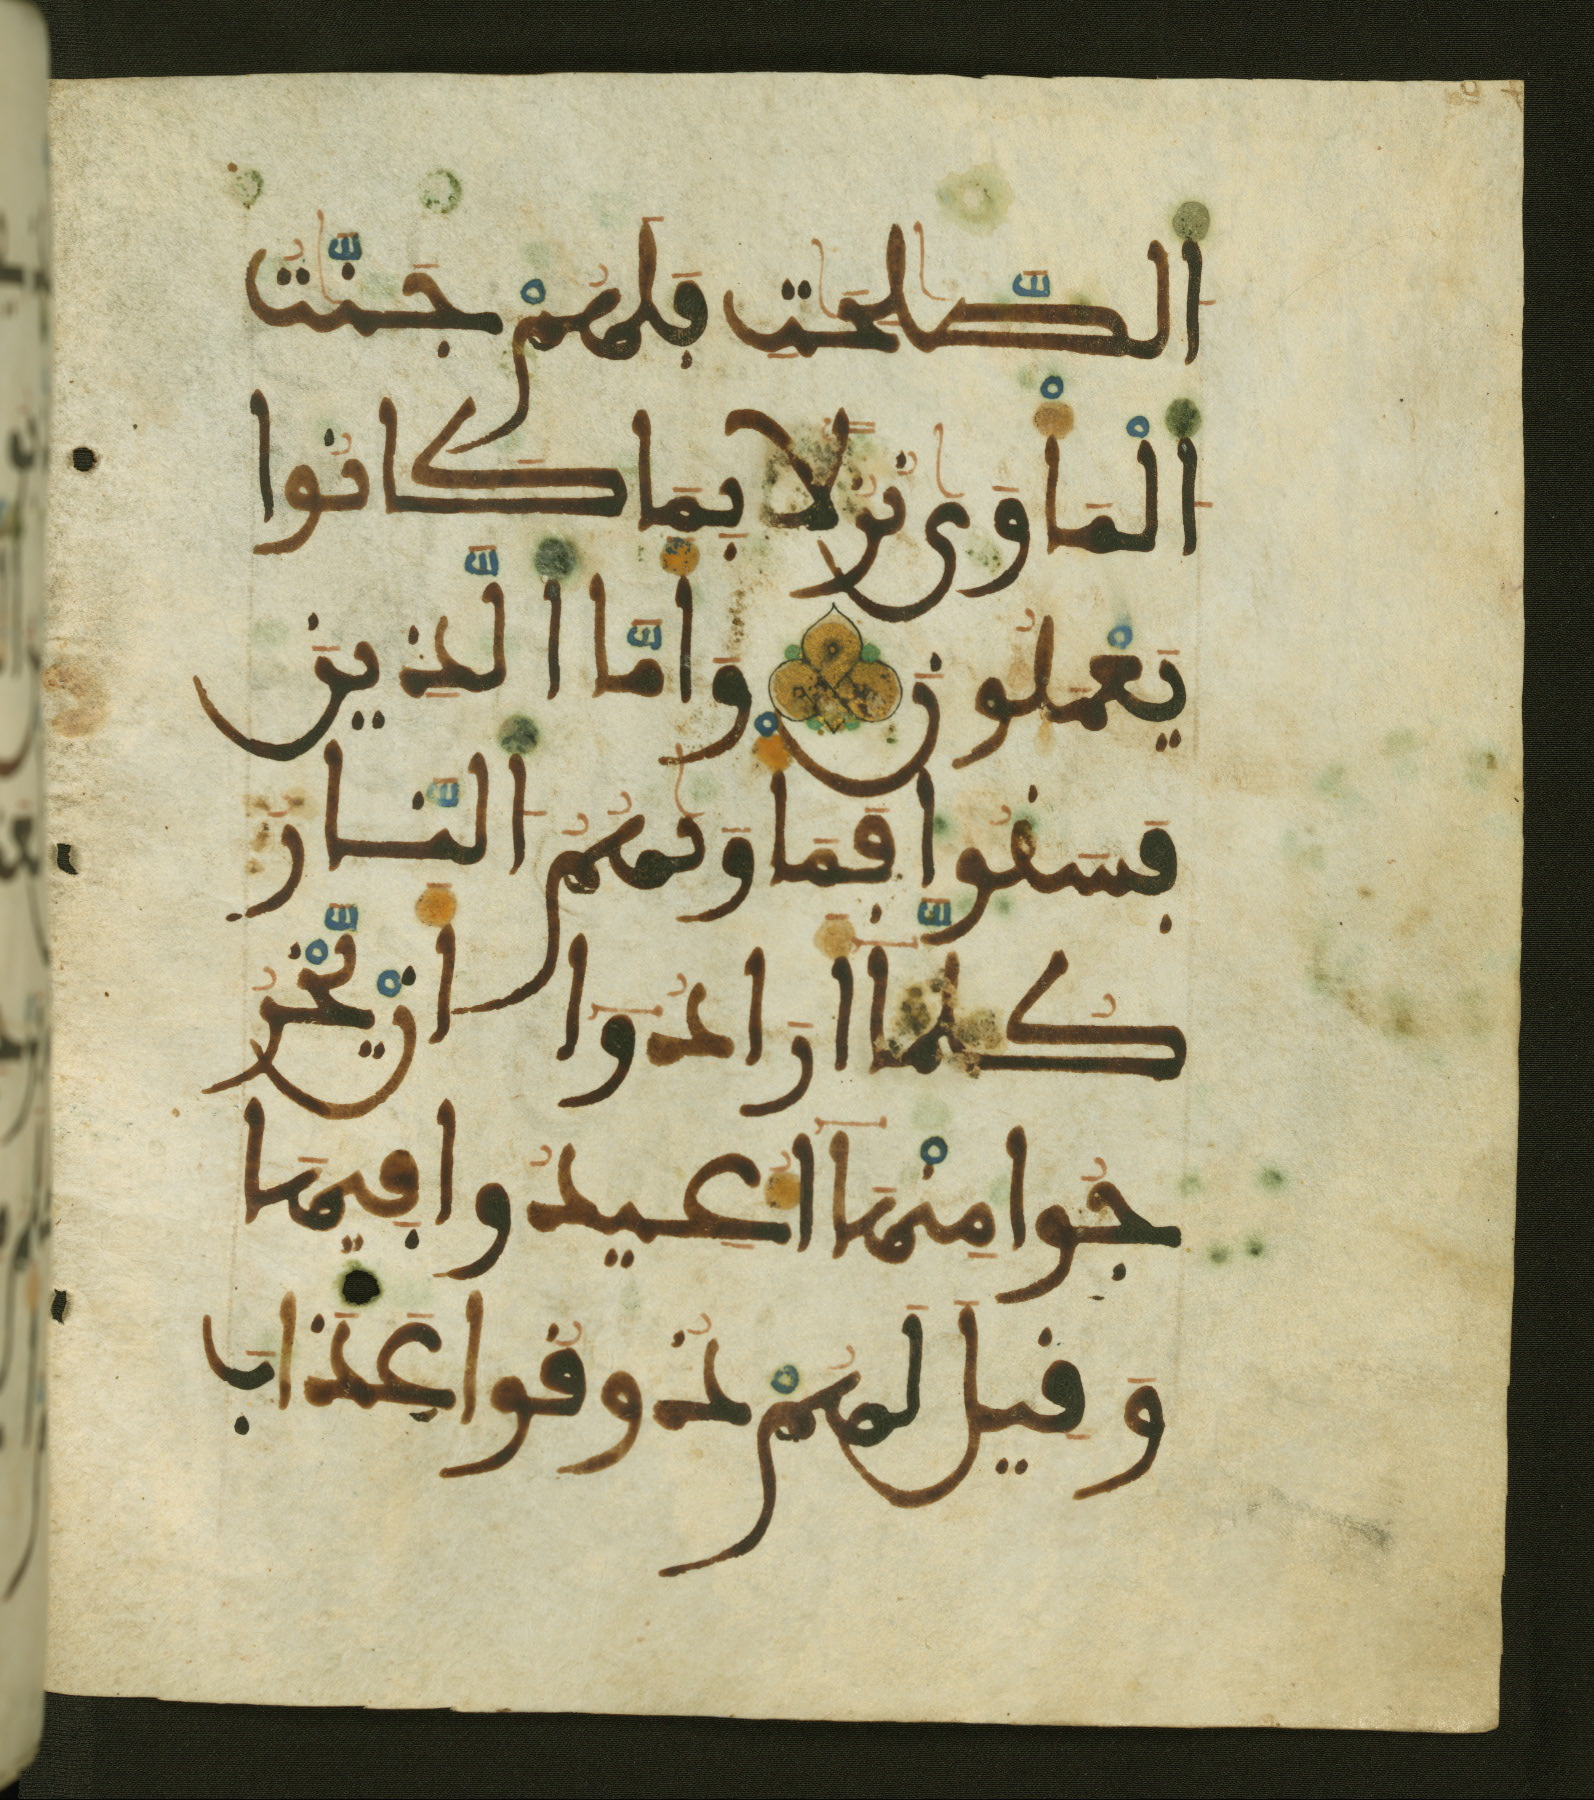 الصَّلِحَتِ فَلَهُمْ جَنَّتُ
الْمَأْوَى نُزُلًا بِمَا كَانُوا
يَعْمَلُونَ وَأَمَّا الَّذِينَ
فَسَقُوا فَمَأْوَىهُمُ النَّارُ
كُلَّمَا أَرَادُوا أَنْ يَّخْرُ
جُوا مِنْهَا أُعِيدُوا فِيهَا
وَقِيلَ لَهُمْ ذُوقُوا عَذَابَ